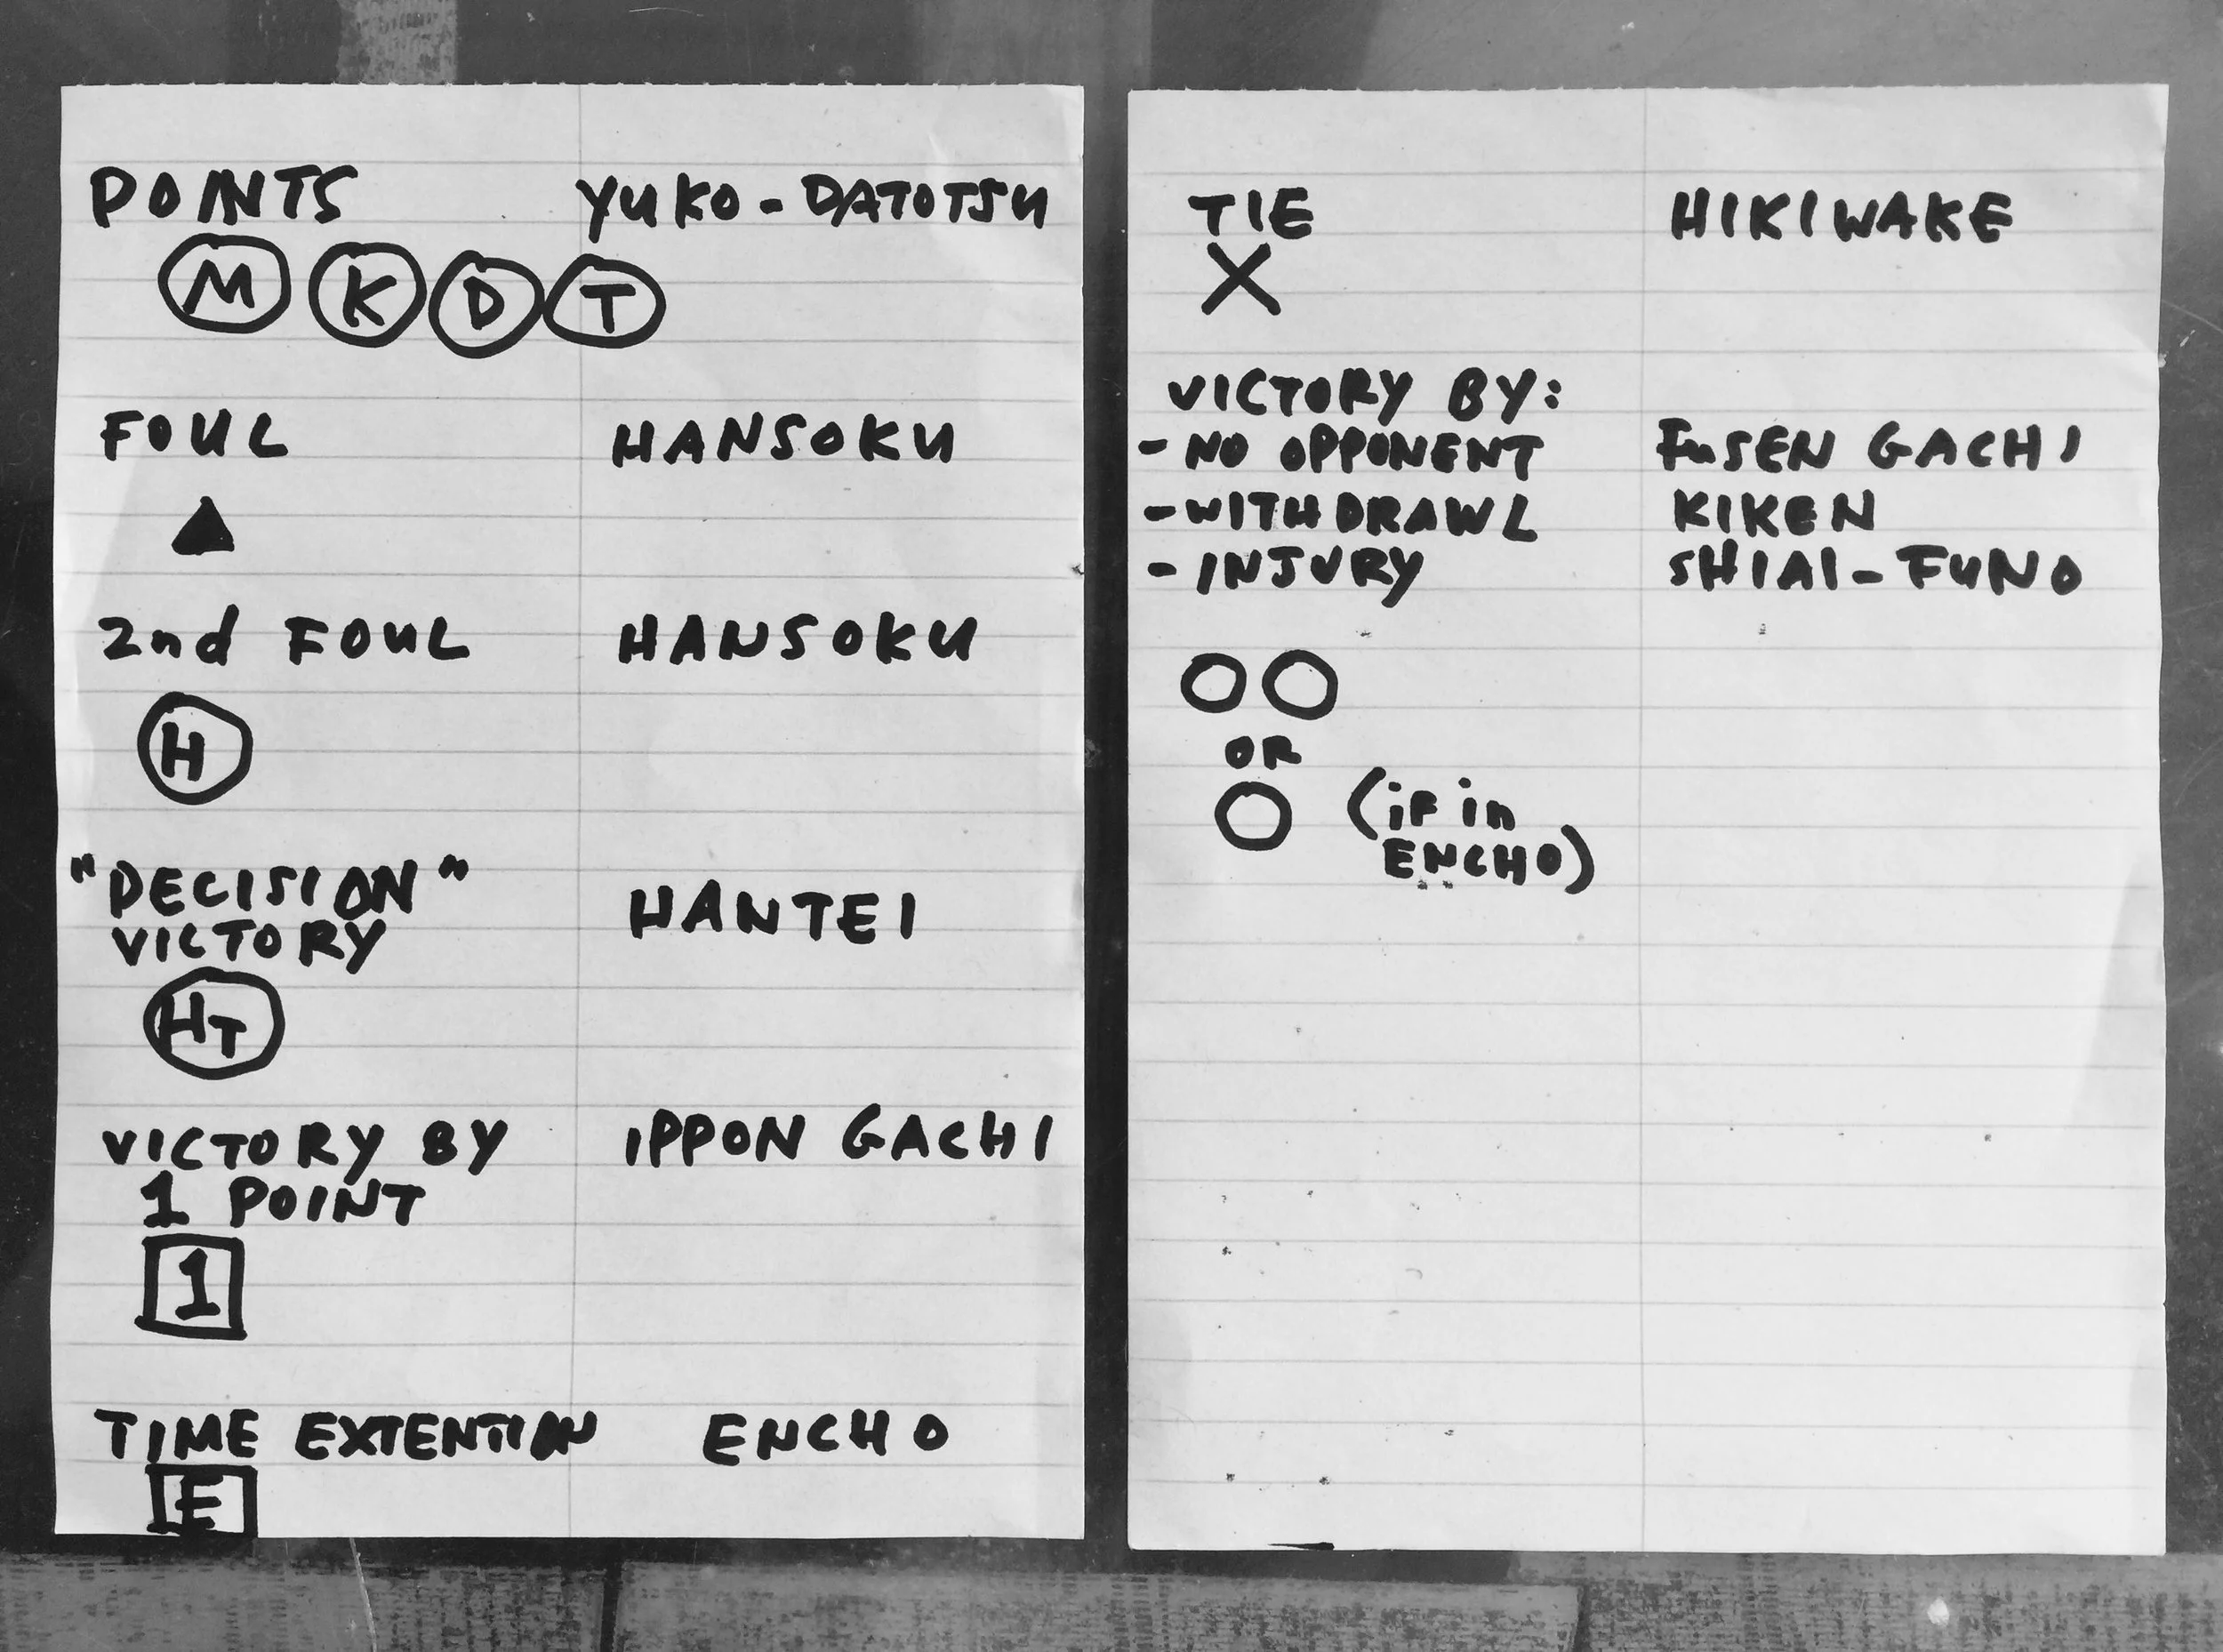 POINTS YUKO-DATOTSU
M K D T
FOUL HANSOKU
2nd FOUL HANSOKU
H
"DECISION" HANTEI
VICTORY
HT
VICTORY BY IPPON GACHI
1 POINT
1
TIME EXTENTION ENCHO
E
TIE HIKIWAKE
X
VICTORY BY:
- NO OPPONENT FuSEN GACHI
- WITHDRAWL KIKEN
- INJURY SHIAI-FUNO
OO
OR
O (iF in
ENCHO)